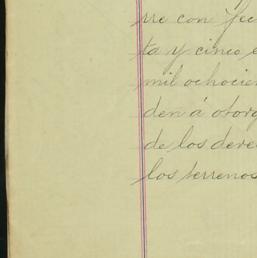 rre con fec
ta y cinco e
mil ochocien
den á otorg
de los dere
los terrenos